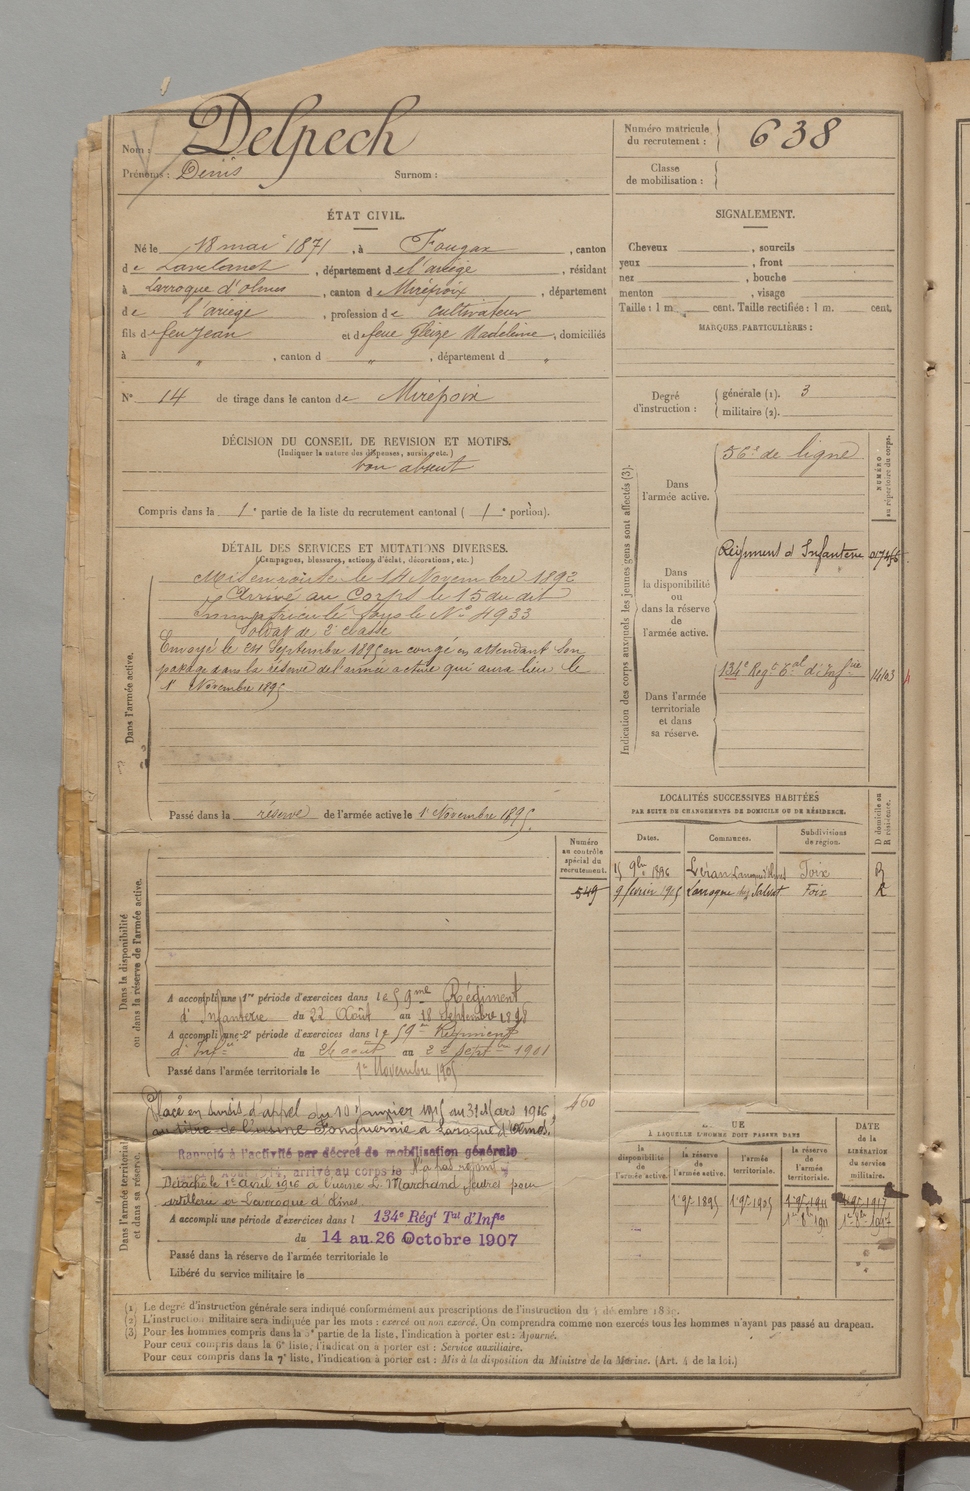 Nom : Delpech
Prénoms : Denis Surnom :
Numéro matricule du recrutement : 638
Classe de mobilisation :
ÉTAT CIVIL.
Né le 18 mai 1871, à Fougax, canton
de Lavelanet, département de l'ariège, résidant
à Larroque d'olmes, canton de Mirepoix, département
de l'ariège, profession de cultivateur
fils de feu Jean et de feue Gleize Madeleine, domiciliés
à " , canton d " , département d "
N° 14 de tirage dans le canton de Mirepoix
SIGNALEMENT.
Cheveux , sourcils
yeux , front
nez , bouche
menton , visage
Taille : 1 m. cent. Taille rectifiée : 1 m. cent.
MARQUES PARTICULIÈRES :
Degré d'instruction : générale (1). 3
militaire (2).
DÉCISION DU CONSEIL DE REVISION ET MOTIFS.
(Indiquer la nature des dispenses, sursis, etc.)
bon absent
Compris dans la 1e partie de la liste du recrutement cantonal ( 1e portion).
DÉTAIL DES SERVICES ET MUTATIONS DIVERSES.
(Campagnes, blessures, actions d'éclat, décorations, etc.)
Dans l'armée active.
Mis en route le 14 Novembre 1892
Arrivé au Corps le 15 du dit
Immatriculé sous le N° 4933
Soldat de 2e classe
Envoyé le 24 Septembre 1895 en congé en attendant son
passage dans la réserve de l'armée active qui aura lieu le
1r Novembre 1895
Passé dans la réserve de l'armée active le 1r Novembre 1895.
Indication des corps auxquels les jeunes gens sont affectés (3).
NUMÉRO au répertoire du corps.
Dans l'armée active.
de ligne
Dans la disponibilité ou dans la réserve de l'armée active.
Régiment d'Infanterie
Dans l'armée territoriale et dans sa réserve.
134e Regt Tal d'Infrie 14103
LOCALITÉS SUCCESSIVES HABITÉES
PAR SUITE DE CHANGEMENTS DE DOMICILE OU DE RÉSIDENCE.
Dates. Communes. Subdivisions de région. D domicile ou R résidence.
15 9bre 1896 Léran Foix R
9 février 1905 Foix R
Dans la disponibilité ou dans la réserve de l'armée active.
Numéro au contrôle spécial du recrutement.
549
A accompli une 1re période d'exercices dans le 59me Régiment
d'Infanterie du 22 Août au 18 Septembre 1898
A accompli une 2e période d'exercices dans le 59e Régiment
d'Infie du 26 août au 22 septbre 1901
Passé dans l'armée territoriale le 1er Novembre 1905
Dans l'armée territoriale et dans sa réserve.
460
Placé en sursis d'appel du 10 Janvier 1915 au 31 Mars 1916
au titre de l'usine Fonquernie à Laroque d'Olmes.
Rappelé à l'activité par décret de mobilisation générale
arrivé au corps le N'a pas rejoint
Détaché le 1er avril 1916 à l'usine L. Marchand feutres pour
artillerie à Larroque d'olmes
A accompli une période d'exercices dans l 134e Régt Tal d'Infie
du 14 au 26 Octobre 1907
Passé dans la réserve de l'armée territoriale le
Libéré du service militaire le
UE
À LAQUELLE L'HOMME DOIT PASSER DANS
la disponibilité de l'armée active. la réserve de l'armée active. l'armée territoriale. la réserve de l'armée territoriale.
DATE de la LIBÉRATION du service militaire.
1r 9bre 1895 1r 9bre 1905 1r 9bre 1911 1r 9bre 1917
1er 8bre 1911 1er 8bre 1917
(1) Le degré d'instruction générale sera indiqué conformément aux prescriptions de l'instruction du 4 décembre
(2) L'instruction militaire sera indiquée par les mots : exercé ou non exercé. On comprendra comme non exercés tous les hommes n'ayant pas passé au drapeau.
(3) Pour les hommes compris dans la 5e partie de la liste, l'indication à porter est : Ajourné.
Pour ceux compris dans la 6e liste, l'indication à porter est : Service auxiliaire.
Pour ceux compris dans la 7e liste, l'indication à porter est : Mis à la disposition du Ministre de la Marine. (Art. 4 de la loi.)